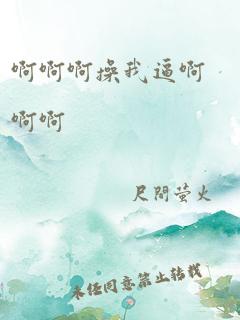 啊啊啊操我逼啊
啊啊
尺間萤火
未经同意禁止转载